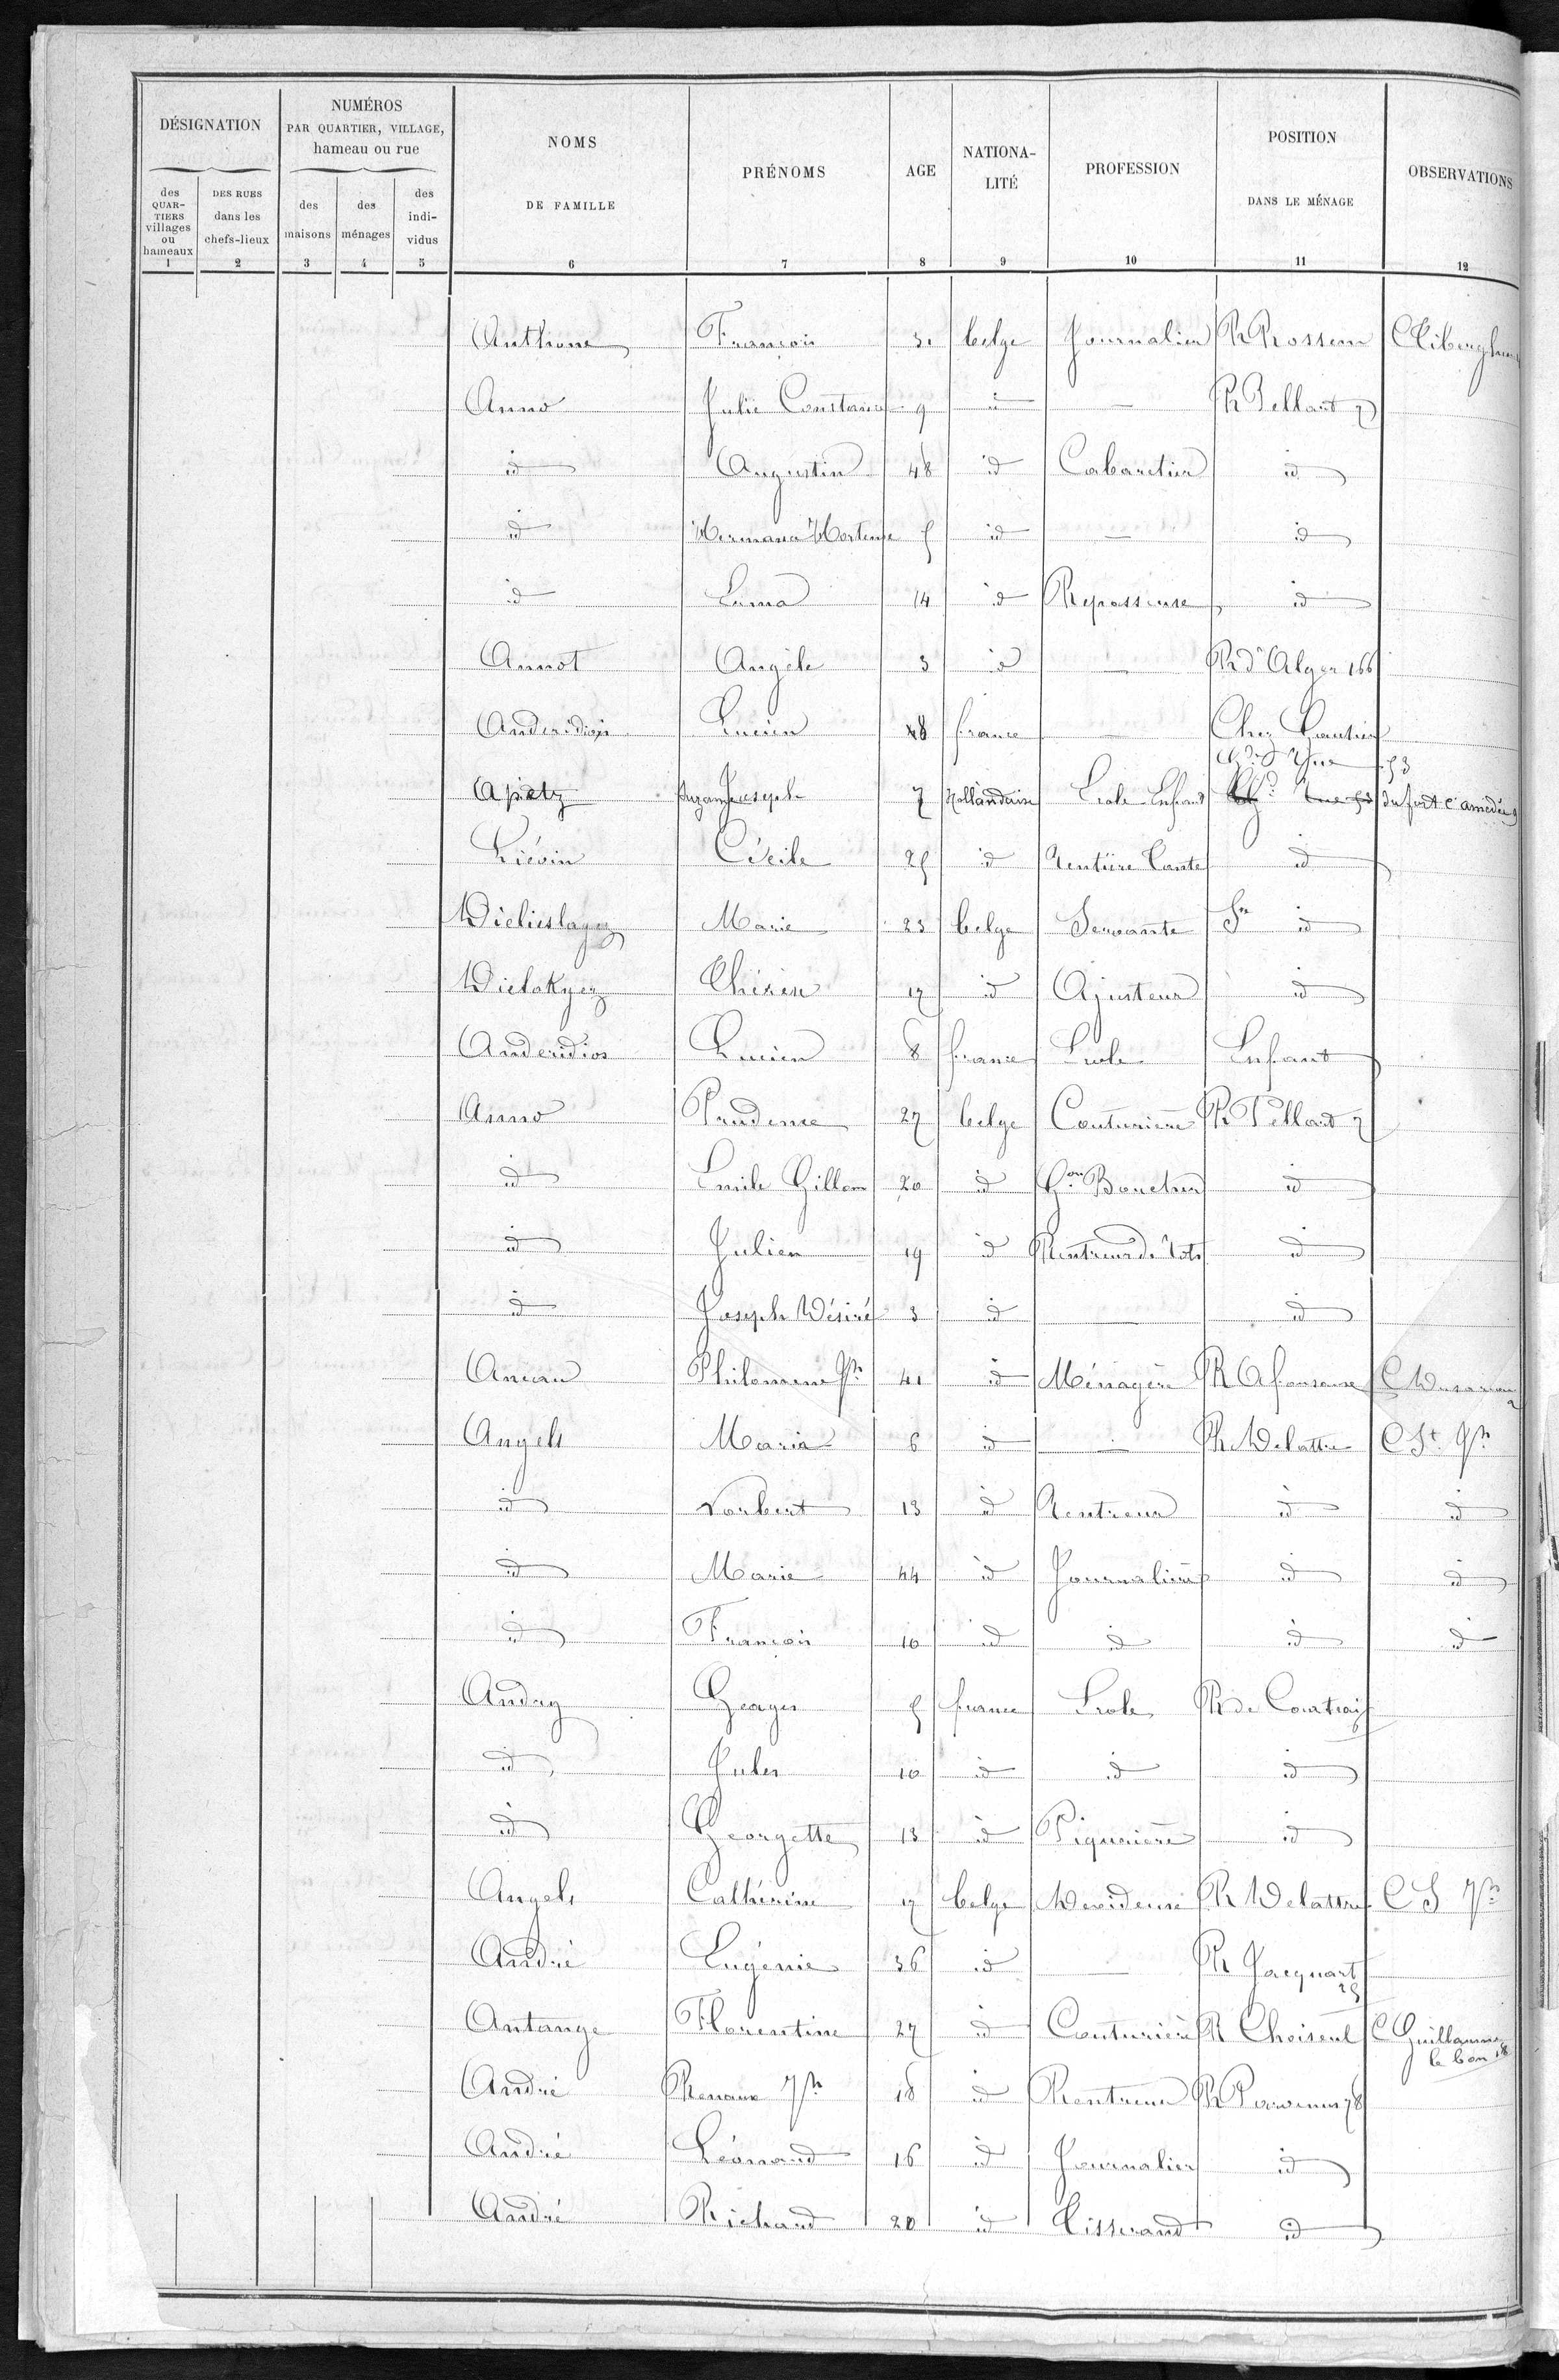 DÉSIGNATION
NUMÉROS
PAR QUARTIER, VILLAGE,
hameau ou rue
NOMS
DE FAMILLE
PRÉNOMS
AGE
NATIONA-
LITÉ
PROFESSION
POSITION
DANS LE MÉNAGE
OBSERVATIONS
des
QUAR-
TIERS
villages
ou
hameaux
DES RUES
dans les
chefs-lieux
des
maisons
des
ménages
des
indi-
vidus
1 2 3 4 5 6 7 8 9 10 11 12
Anthone François belge Journalier R Rossem
Anno Julie Constance 9 id — R Pellart
id Augustin 48 id Cabaretier id
id Hortense 5 id — id
id 14 id Repasseuse id
Annot Angèle 3 id — R d'Alger 166
Anderidios Lucien 48 france — Chez Gautier
53
Apetz Joseph 7 Hollandaise Ecole Enfant
Liévin Cécile 25 id Rentière Tante id
Marie 23 belge Servante id
17 id Ajusteur id
Anderidios Lucien 8 france Ecole Enfant
Anno Prudence 27 belge Couturière R Pellart
id Emile 20 id Gon Boucher id
id Julien 19 id id
id Joseph Désiré 3 id — id
Philomène 41 id Ménagère R
Angels Maria 6 id — R Delattre C St Jh
id Norbert 13 id Rentreur id id
id Marie 44 id Journalière id id
id François 10 id id id id
Andry Georges 5 france Ecole R de Courtrai
id Jules 10 id id id
id Georgette 13 id id
Angels Cathérine 17 belge Devideuse R Delattre C S Jh
André Eugénie 36 id — R Jacquart
25
Antange Florentine 27 id Couturière R Choiseul C Guillaume
le bon 18
André Jh 18 id Rentreur R
André Léonard 16 id Journalier id
André Richard 20 id Tisserand id